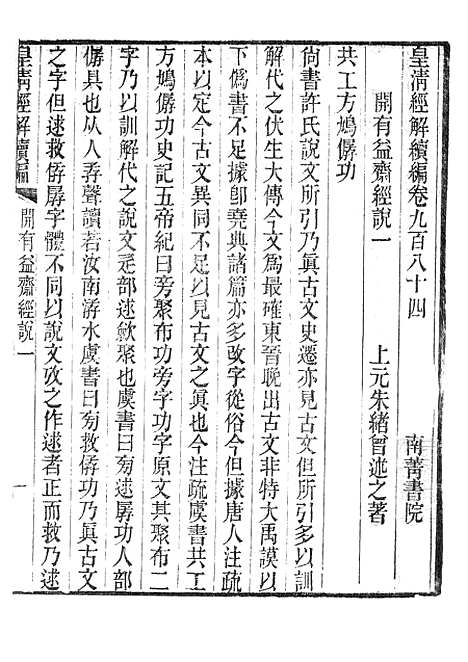 皇清經解續編卷九百八十四
南菁書院
開有益齋經說一
上元朱緒曾述之著
共工方鳩僝功
尙書許氏說文所引乃眞古文史遷亦見古文但所引多以訓
解代之伏生大傳今文爲最確東晉晚出古文非特大禹謨以
下僞書不足據卽堯典諸篇亦多改字從俗今但據唐人注疏
本以定今古文異同不足以見古文之眞也今注疏虞書共工
方鳩僝功史記五帝紀曰旁聚布功旁字功字原文其聚布二
字乃以訓解代之說文辵部逑斂聚也虞書曰旁逑孱功人部
僝具也从人孨聲讀若汝南潺水虞書曰旁救僝功乃眞古文
之字但逑救僝孱字體不同以說文攷之作逑者正而救乃逑
皇淸經解續編
開有益齋經說一
一